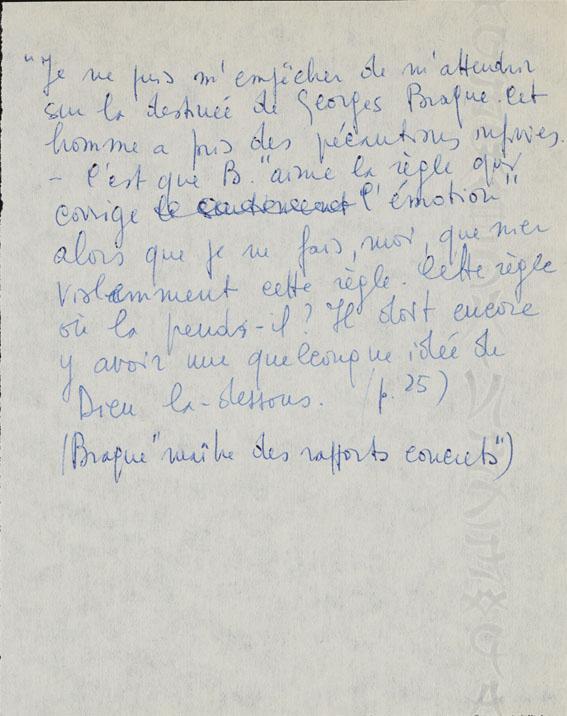 "Je ne puis m'empêcher de m'attendrir
sur la destinée de Georges Braque. Cet
homme a pris des précautions infinies.
- C'est que B. "aime la règle qui
corrige l'émotion"
alors que je ne fais, moi, que nier
violemment cette règle. Cette règle
où la prends-il? Il doit encore
y avoir une quelconque idée de
Dieu là-dessous. (p. 25)
(Braque "maître des rapports concrets")